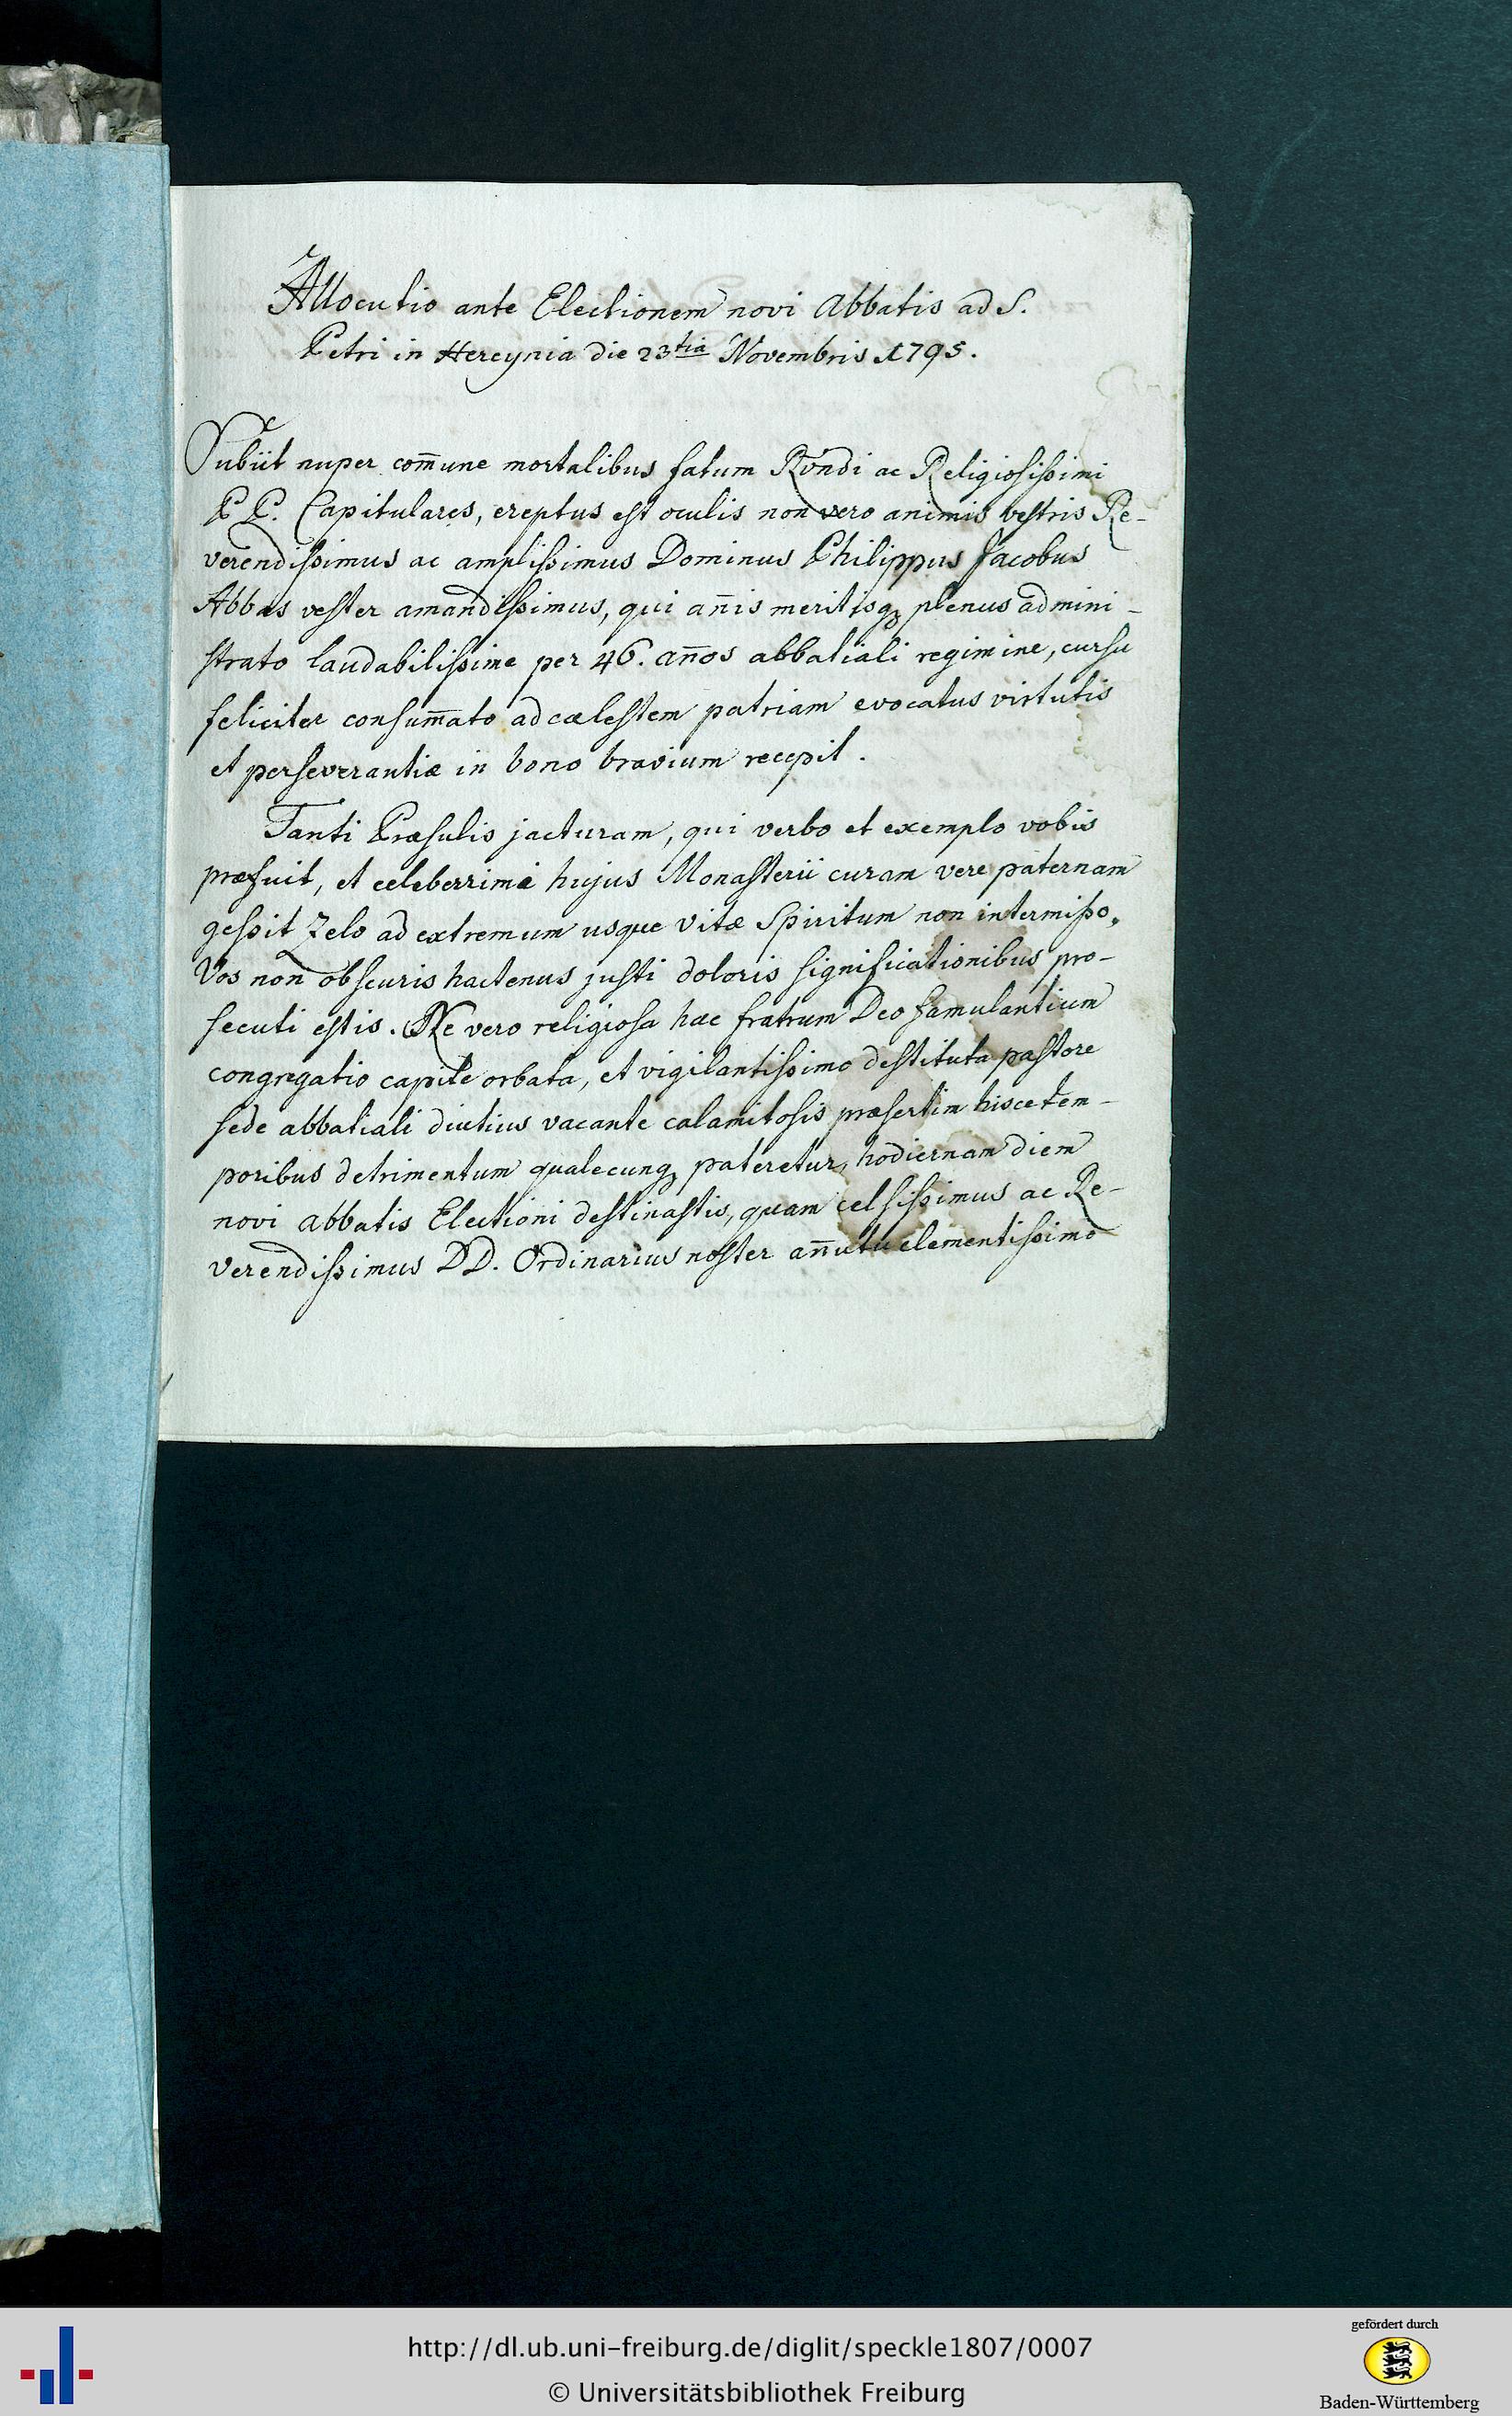 Allocutio ante Electionem novi Abbatis ad S.
Petri in Hercynia die 23tia Novembris 1795.
Subiit nuper com̄une mortalibus fatum Rv̄ndi ac Religiosissimi
P P. Capitulares, ereptus est oculis non vero animis vestris Re-
verendissimus ac amplissimus Dominus Philippus Jacobus
Abbas vester amandissimus, qui an̄is meritisq; plenus admini-
strato laudabilissime per 46. an̄os abbatiali regimine, cursu
feliciter consum̄ato ad cælestem patriam evocatus virtutis
et perseverantiæ in bono bravium recepit.
Tanti Præsulis jacturam, qui verbo et exemplo vobis
præfuit, et celeberrimi hujus Monasterii curam vere paternam
gessit Zelo ad extremum usque vitæ Spiritum non intermisso,
Vos non obscuris hactenus justi doloris significationibus pro-
secuti estis. Ne vero religiosa hæc fratrum Deo famulantium
congregatio capite orbata, et vigilantissimo destituta pastore
sede abbatiali diutius vacante calamitosis præsertim hisce tem-
poribus detrimentum qualecunq; pateretur, hodiernam diem
novi abbatis Electioni destinastis, quam celsissimus ac Re-
verendissimus DD. Ordinarius noster an̄utu clementissimo
http://dl.ub.uni-freiburg.de/diglit/speckle1807/0007
© Universitätsbibliothek Freiburg
gefördert durch
Baden-Württemberg